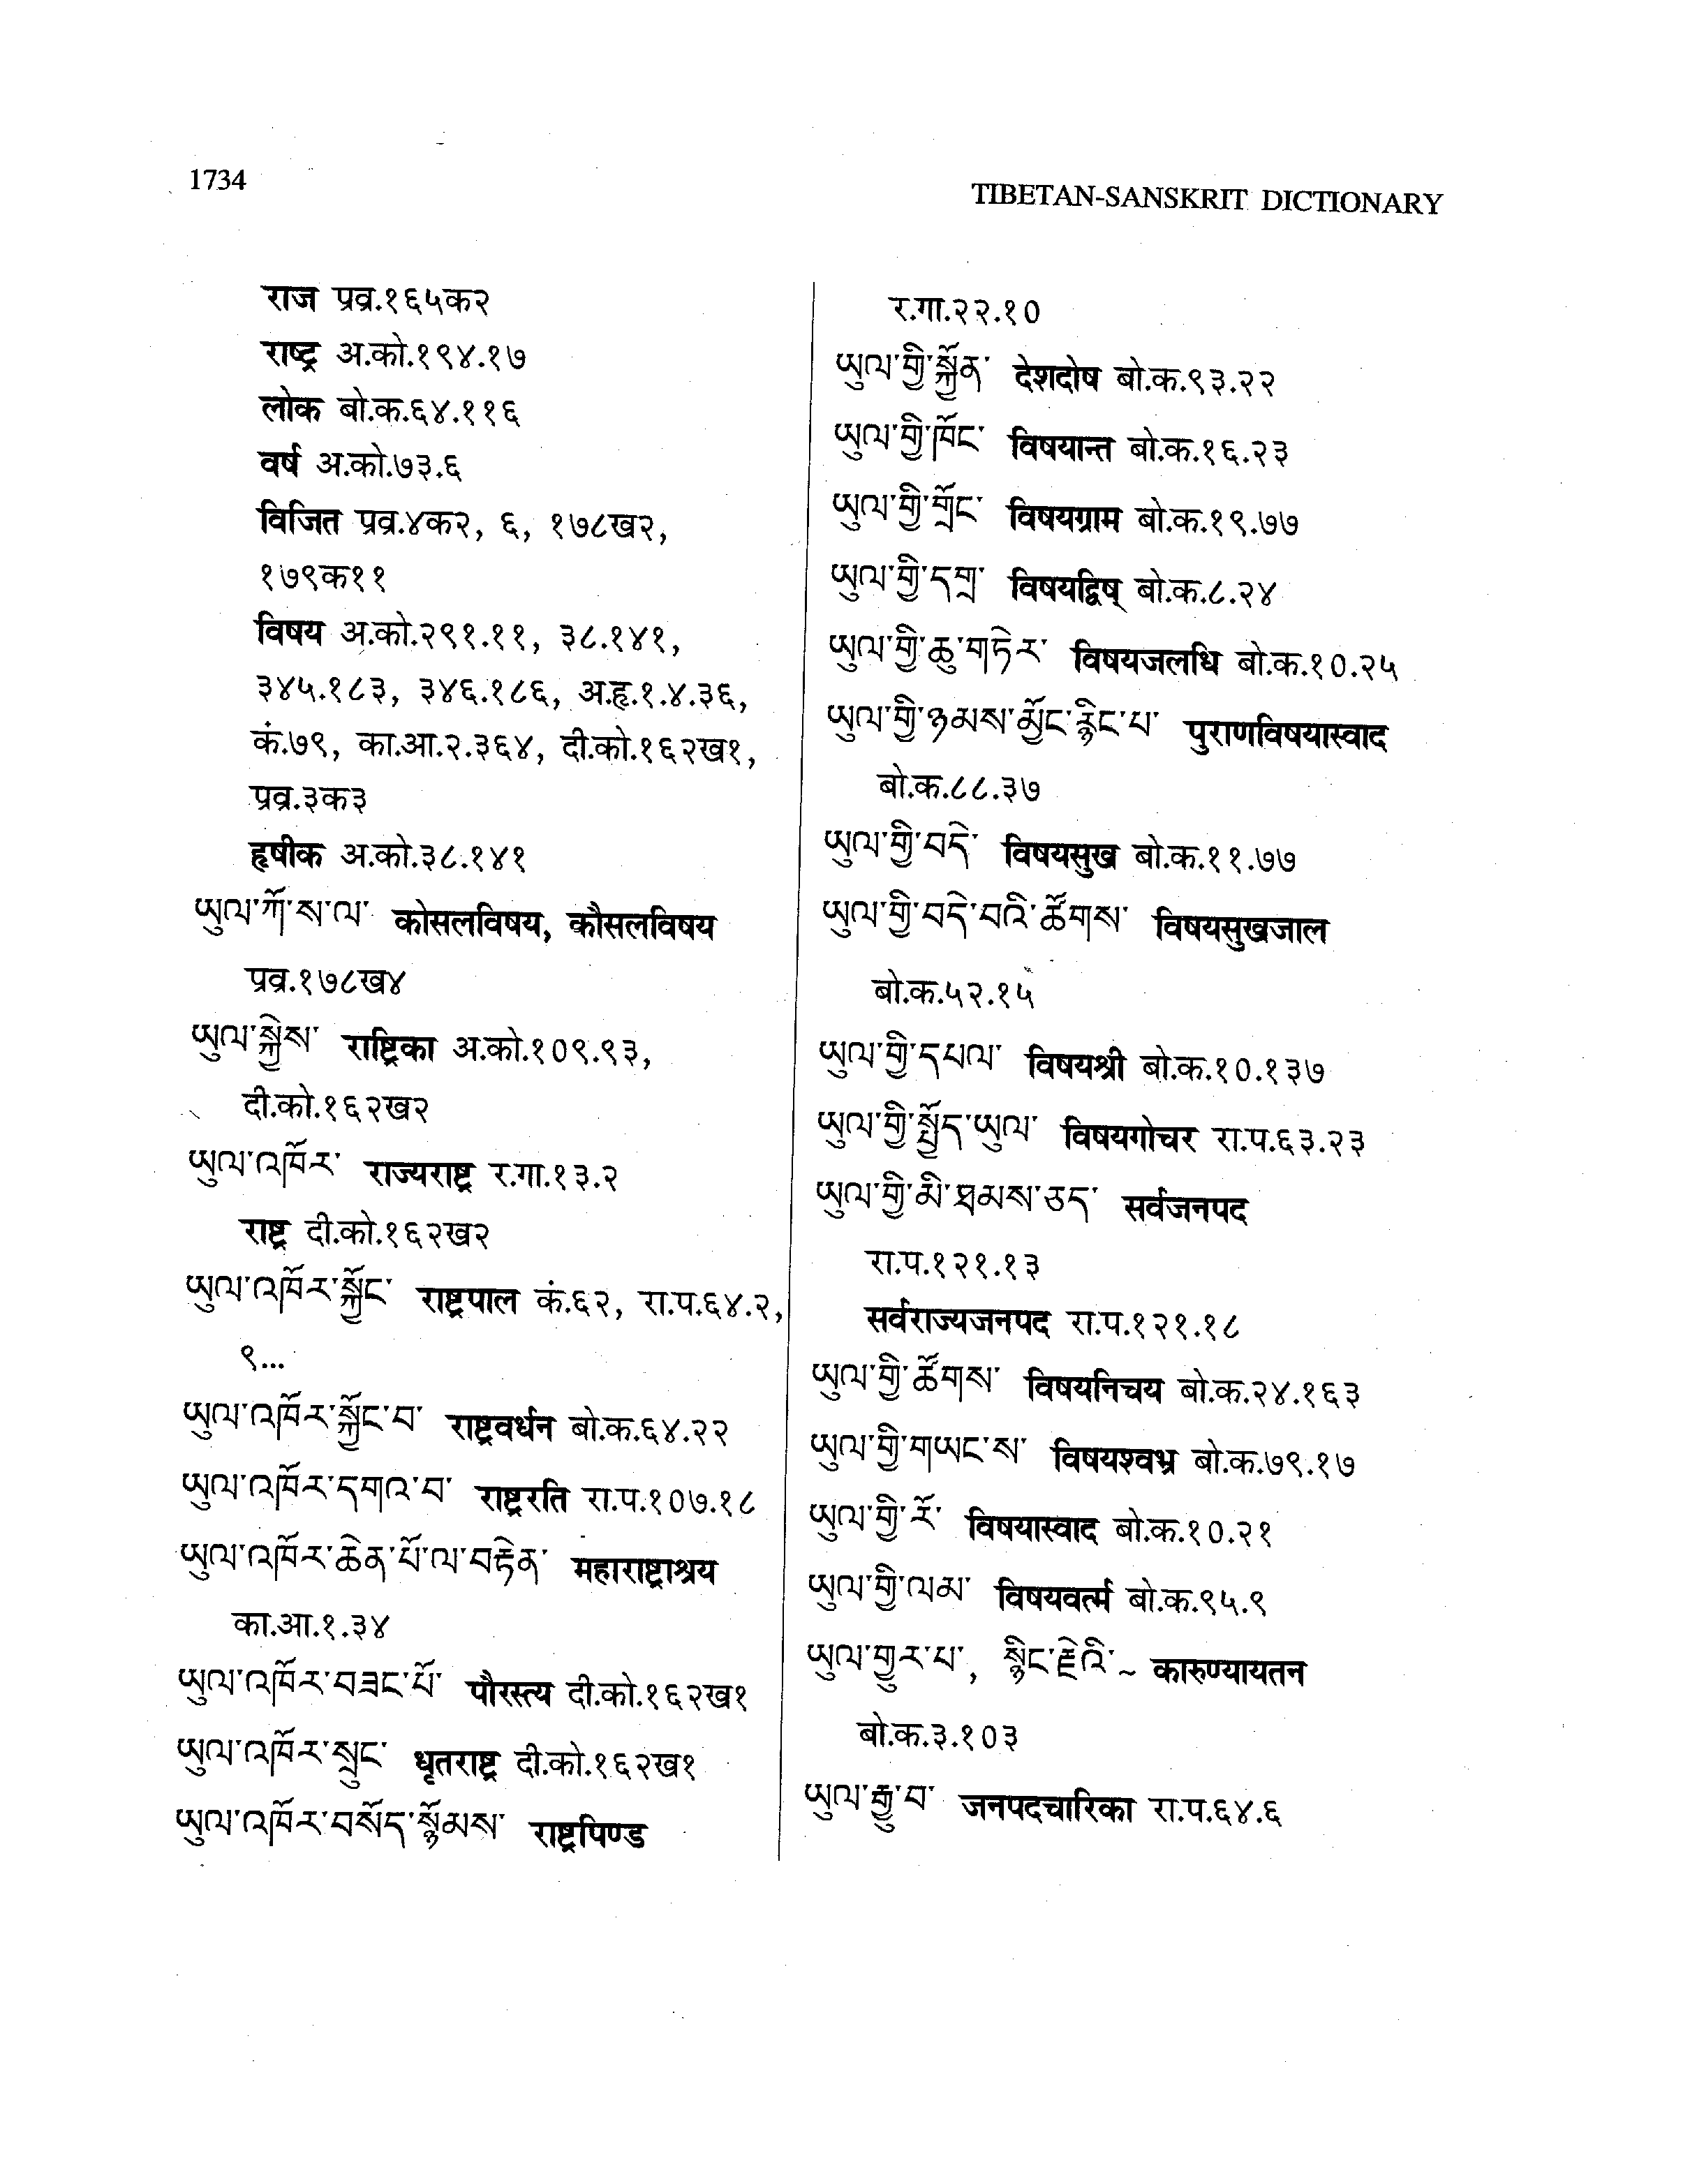 1734
TIBETAN-SANSKRIT DICTIONARY
राज प्रव्र.१६५क२
राष्ट्र अ.को.१९४.१७
लोक बो.क.६४.११६
वर्ष अ.को.७३.६
विजित प्रव्र.४क२, ६, १७८ख२,
१७९क११
विषय अ.को.२९१.११, ३८.१४१,
३४५.१८३, ३४६.१८६, अ.हृ.१.४.३६,
कं.७९, का.आ.२.३६४, दी.को.१६२ख१,
प्रव्र.३क३
हृषीक अ.को.३८.१४१
ཡུལ་ཀོ་ས་ལ་ कोसलविषय, कौसलविषय
प्रव्र.१७८ख४
ཡུལ་སྐྱེས་ राष्ट्रिका अ.को.१०९.९३,
दी.को.१६२ख२
ཡུལ་འཁོར་ राज्यराष्ट्र र.गा.१३.२
राष्ट्र दी.को.१६२ख२
ཡུལ་འཁོར་སྐྱོང་ राष्ट्रपाल कं.६२, रा.प.६४.२,
९...
ཡུལ་འཁོར་སྐྱོང་བ་ राष्ट्रवर्धन बो.क.६४.२२
ཡུལ་འཁོར་དགའ་བ་ राष्ट्ररति रा.प.१०७.१८
ཡུལ་འཁོར་ཆེན་པོ་ལ་བརྟེན་ महाराष्ट्राश्रय
का.आ.१.३४
ཡུལ་འཁོར་བཟང་པོ་ पौरस्त्य दी.को.१६२ख१
ཡུལ་འཁོར་སྲུང་ धृतराष्ट्र दी.को.१६२ख१
ཡུལ་འཁོར་བསོད་སྙོམས་ राष्ट्रपिण्ड
र.गा.२२.१०
ཡུལ་གྱི་སྐྱོན་ देशदोष बो.क.९३.२२
ཡུལ་གྱི་ཁོང་ विषयान्त बो.क.१६.२३
ཡུལ་གྱི་གྲོང་ विषयग्राम बो.क.१९.७७
ཡུལ་གྱི་དགྲ་ विषयद्विष् बो.क.८.२४
ཡུལ་གྱི་ཆུ་གཏེར་ विषयजलधि बो.क.१०.२५
ཡུལ་གྱི་ཉམས་མྱོང་རྙིང་པ་ पुराणविषयास्वाद
बो.क.८८.३७
ཡུལ་གྱི་བདེ་ विषयसुख बो.क.११.७७
ཡུལ་གྱི་བདེ་བའི་ཚོགས་ विषयसुखजाल
बो.क.५२.१५
ཡུལ་གྱི་དཔལ་ विषयश्री बो.क.१०.१३७
ཡུལ་གྱི་སྤྱོད་ཡུལ་ विषयगोचर रा.प.६३.२३
ཡུལ་གྱི་མི་ཐམས་ཅད་ सर्वजनपद
रा.प.१२१.१३
सर्वराज्यजनपद रा.प.१२१.१८
ཡུལ་གྱི་ཚོགས་ विषयनिचय बो.क.२४.१६३
ཡུལ་གྱི་གཡང་ས་ विषयश्वभ्र बो.क.७९.१७
ཡུལ་གྱི་རོ་ विषयास्वाद बो.क.१०.२१
ཡུལ་གྱི་ལམ་ विषयवर्त्म बो.क.९५.९
ཡུལ་གྱུར་པ་, སྙིང་རྗེའི་~ कारुण्यायतन
बो.क.३.१०३
ཡུལ་རྒྱུ་བ་ जनपदचारिका रा.प.६४.६